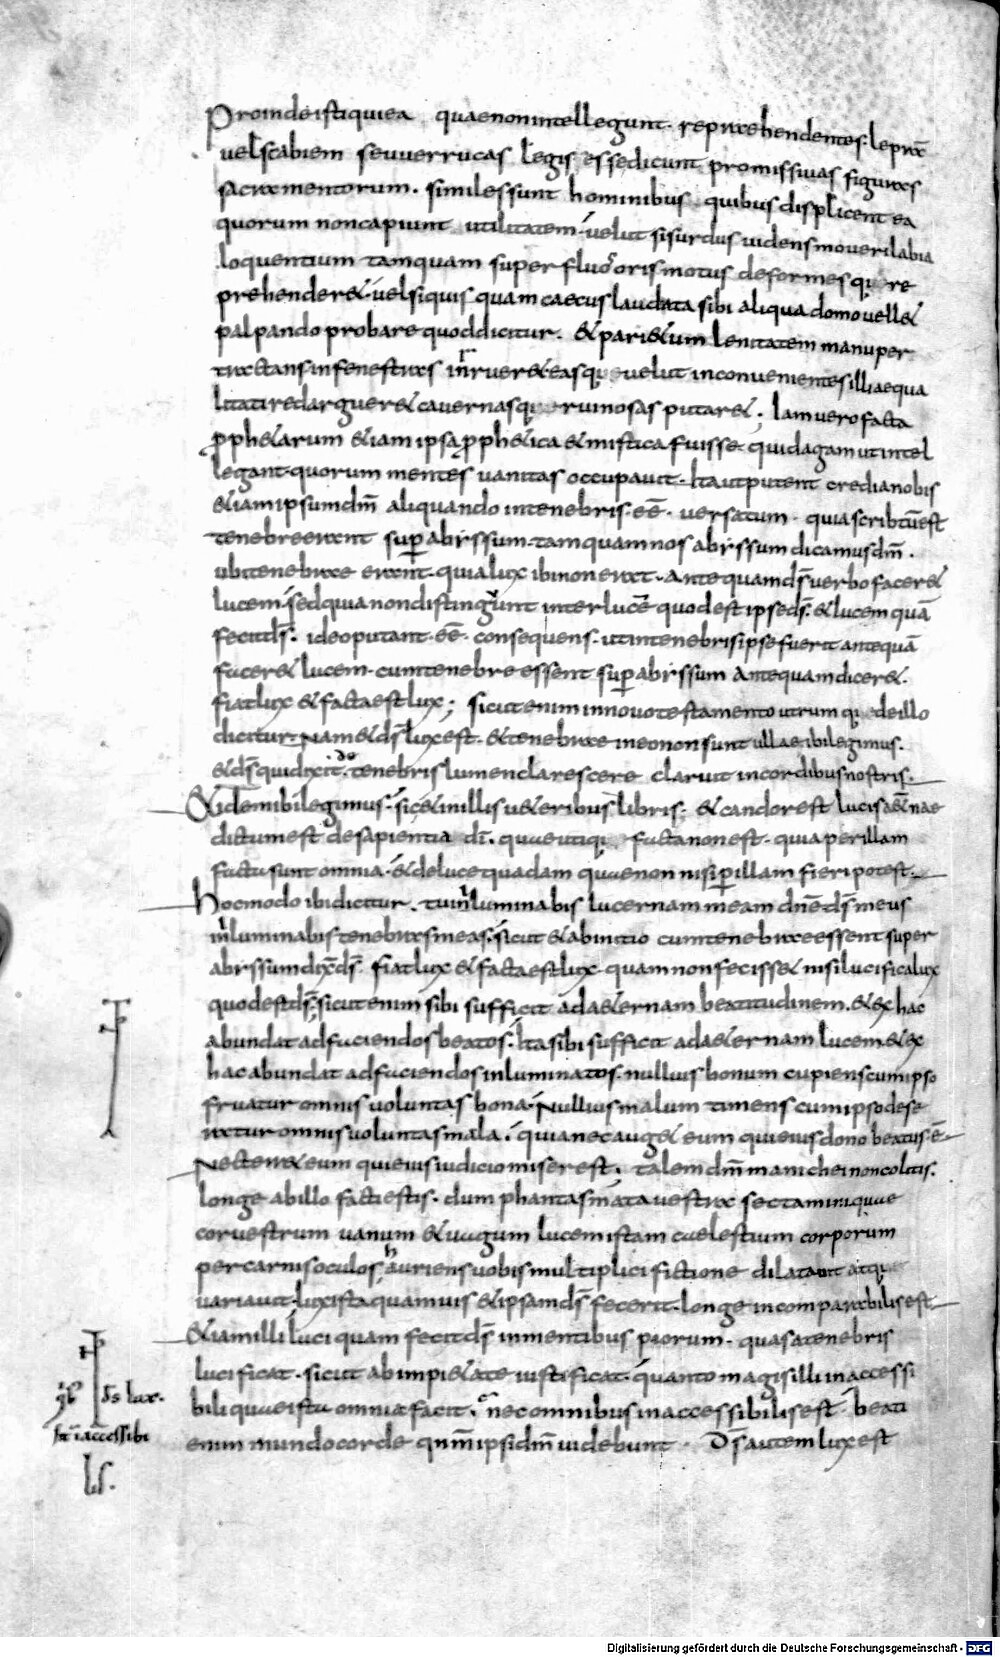 Proinde isti qui ea quae non intellegunt. repraehendentes. leprã
vel scabiem seu verrucas legis esse dicunt promissivas figuras
sacramentorum. similes sunt hominibus quibus displicent ea
quorum non capiunt utilitatem. velut si surdus videns moveri labia
loquentium tamquam superfluos oris motus deformesque re
prehenderet. vel si quis quam caecus laudata sibi aliqua domo vellet
palpando probare quod dicitur. et parietum lenitatem manu per
tractans in fenestras inrueret easque velut inconvenientes illi aequa
litati redargueret cavernasque ruinosas putaret; Iam vero facta
pphetarum etiam ipsa pphetica et mistica fuisse. quid agam ut intel
legant. quorum mentes vanitas occupavit. Ita ut putent credi a nobis
etiam ipsum dm̄ aliquando in tenebris. eē. versatum. quia scribtū est
tenebre erant sup abissum. tamquam nos abissum dicamus dm̄.
ubi tenebrae erant. quia lux ibi non erat. Antequam ds̄ verbo faceret
lucem. sed quia non distingunt inter lucē quod est ipse ds̄. et lucem quā
fecit ds̄. ideo putant. eē. consequens. ut in tenebris ipse fuerit antequā
faceret lucem. cum tenebre essent sup abissum Antequam diceret.
fiat lux et facta est lux; sicut enim in novo testamento utrumque de illo
dicitur. Nam et ds̄ lux est. et tenebrae in eo non sunt ullae ibi legimus.
et ds̄ qui dixit. de tenebris lumen clarescere claruit in cordibus nostris.
Et idem ibi legimus. sic et in illis veteribus libris; et candor est lucis aet̄nae
dictum est de sapientia dī. quae utique facta non est. quia per illam
facta sunt omnia. et de luce quadam quae non nisi p illam fieri potest.
hoc modo ibi dicitur. tu inluminabis lucernam meam dnē ds̄ meus
inluminabis tenebras meas. sicut et ab initio cum tenebrae essent super
abissum dix̄ ds̄. fiat lux et facta est lux. quam non fecisset nisi lucifica lux
quod est ds̄. sicut enim sibi sufficit ad aeternam beatitudinem. et ex hac
abundat ad faciendos beatos. Ita sibi sufficit ad aeternam lucem et ex
hac abundat ad faciendos inluminatos. nullius bonum cupiens cum ipso
fruatur omnis voluntas bona. Nullius malum timens cum ipso dese
ratur omnis voluntas mala. quia nec auget eum qui eius dono beatus ē.
Nec terret eum qui eius iudicio miser est; talem dm̄ manichei non colitis.
longe ab illo facti estis. dum phantasmata vestra sectamini quae
cor vestrum vanum et vagum lucem istam caelestium corporum
per carnis oculos hauriens vobis multiplici fictione dilatavit atque
variavit. lux ista quamvis et ipsam ds̄ fecerit. longe incomparabilis est
etiam illi luci quam fecit ds̄ in mentibus piorum. quas a tenebris
lucificat. sicut ab impietate iustificat. quanto magis illi inaccessi
bili quae ista omnia facit. nec omnibus inaccessibilis est beati
enim mundo corde qnm̄ ipsi dm̄ videbunt. Ds̄ autem lux est
ds̄ lux.
inaccessibi
lis.